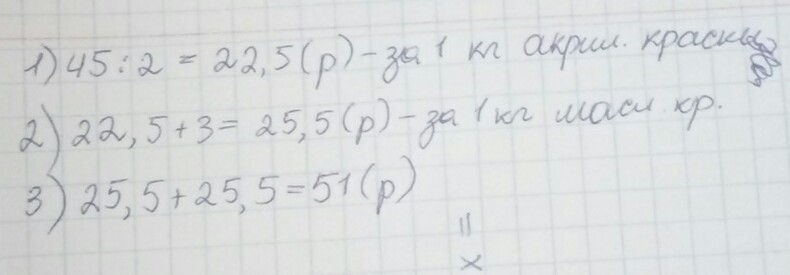 1) 45 : 2 = 22,5 (р) - за 1 кг акрил. краски
2) 22,5 + 3 = 25,5 (р) - за 1 кг масл. кр.
3) 25,5 + 25,5 = 51 (р)
=
x